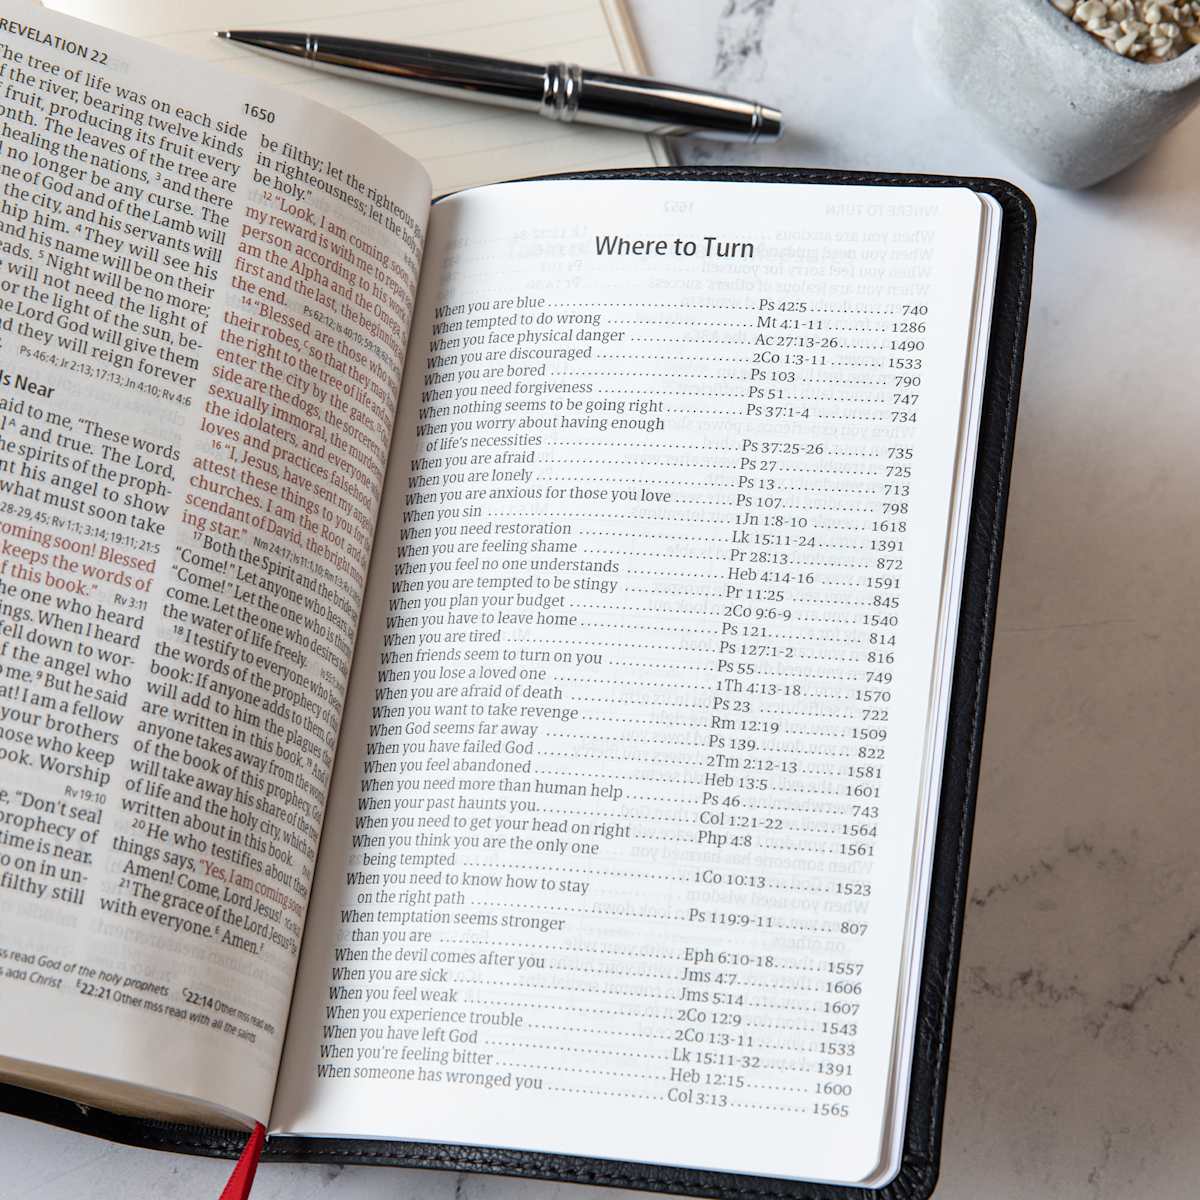 REVELATION 22
The tree of life was on each side
of the river, bearing twelve kinds
fruit, producing its fruit every
The leaves of the tree are
healing the nations, ³ and there
no longer be any curse. The
of God and of the Lamb will
the city, and his servants will
him. ⁴ They will see his
and his name will be on their
⁵ Night will be no more;
will not need the light of
or the light of the sun, be-
Lord God will give them
and they will reign forever
Ps 46:4; Jr 2:13; 17:13; Jn 4:10; Rv 4:6
Is Near
said to me, “These words
and true. The Lord,
the spirits of the proph-
sent his angel to show
what must soon take
28-29,45; Rv 1:1; 3:14; 19:11; 21:5
coming soon! Blessed
keeps the words of
of this book.” Rv 3:11
the one who heard
things. When I heard
fell down to wor-
of the angel who
me, ⁹ But he said
that! I am a fellow
your brothers
those who keep
book. Worship
Rv 19:10
“Don’t seal
prophecy of
time is near.
go on in un-
filthy still
1650
be filthy; let the righteous
in righteousness; let the holy
be holy.”
¹² “Look, I am coming soon,
my reward is with me to repay
person according to his work.
am the Alpha and the Omega,
first and the last, the beginning
the end. Ps 62:12; Is 40:10; 59:18;
¹⁴ “Blessed are those who
their robes,ᶜ so that they may
the right to the tree of life and
enter the city by the gates.
side are the dogs, the sorcerers,
sexually immoral, the murderers,
the idolaters, and everyone
loves and practices falsehood.
¹⁶ “I, Jesus, have sent my angel
attest these things to you for
churches. I am the Root and
scendant of David, the bright morn-
ing star.” Nm 24:17; Is 11:1,10; Rm 1:3;
¹⁷ Both the Spirit and the bride
“Come!” Let anyone who hears,
“Come!” Let the one who is thirsty
come. Let the one who desires
the water of life freely.
¹⁸ I testify to everyone who hears
the words of the prophecy of this
book: If anyone adds to them, God
will add to him the plagues that
are written in this book. ¹⁹ And if
anyone takes away from the words
of the book of this prophecy, God
will take away his share of the tree
of life and the holy city, which are
written about in this book.
²⁰ He who testifies about these
things says, “Yes, I am coming soon.”
Amen! Come, Lord Jesus!
²¹ The grace of the Lord Jesus be
with everyone.ᴱ Amen.ᶠ
mss read God of the holy prophets ᶜ22:14 Other mss read who
add Christ ᴱ22:21 Other mss read with all the saints
Where to Turn
When you are blue ........ Ps 42:5 ........ 740
When tempted to do wrong ........ Mt 4:1-11 ........ 1286
When you face physical danger ........ Ac 27:13-26 ........ 1490
When you are discouraged ........ 2Co 1:3-11 ........ 1533
When you are bored ........ Ps 103 ........ 790
When you need forgiveness ........ Ps 51 ........ 747
When nothing seems to be going right ........ Ps 37:1-4 ........ 734
When you worry about having enough
of life’s necessities ........ Ps 37:25-26 ........ 735
When you are afraid ........ Ps 27 ........ 725
When you are lonely ........ Ps 13 ........ 713
When you are anxious for those you love ........ Ps 107 ........ 798
When you sin ........ 1Jn 1:8-10 ........ 1618
When you need restoration ........ Lk 15:11-24 ........ 1391
When you are feeling shame ........ Pr 28:13 ........ 872
When you feel no one understands ........ Heb 4:14-16 ........ 1591
When you are tempted to be stingy ........ Pr 11:25 ........ 845
When you plan your budget ........ 2Co 9:6-9 ........ 1540
When you have to leave home ........ Ps 121 ........ 814
When you are tired ........ Ps 127:1-2 ........ 816
When friends seem to turn on you ........ Ps 55 ........ 749
When you lose a loved one ........ 1Th 4:13-18 ........ 1570
When you are afraid of death ........ Ps 23 ........ 722
When you want to take revenge ........ Rm 12:19 ........ 1509
When God seems far away ........ Ps 139 ........ 822
When you have failed God ........ 2Tm 2:12-13 ........ 1581
When you feel abandoned ........ Heb 13:5 ........ 1601
When you need more than human help ........ Ps 46 ........ 743
When your past haunts you ........ Col 1:21-22 ........ 1564
When you need to get your head on right ........ Php 4:8 ........ 1561
When you think you are the only one
being tempted ........ 1Co 10:13 ........ 1523
When you need to know how to stay
on the right path ........ Ps 119:9-11 ........ 807
When temptation seems stronger
than you are ........ Eph 6:10-18 ........ 1557
When the devil comes after you ........ Jms 4:7 ........ 1606
When you are sick ........ Jms 5:14 ........ 1607
When you feel weak ........ 2Co 12:9 ........ 1543
When you experience trouble ........ 2Co 1:3-11 ........ 1533
When you have left God ........ Lk 15:11-32 ........ 1391
When you’re feeling bitter ........ Heb 12:15 ........ 1600
When someone has wronged you ........ Col 3:13 ........ 1565